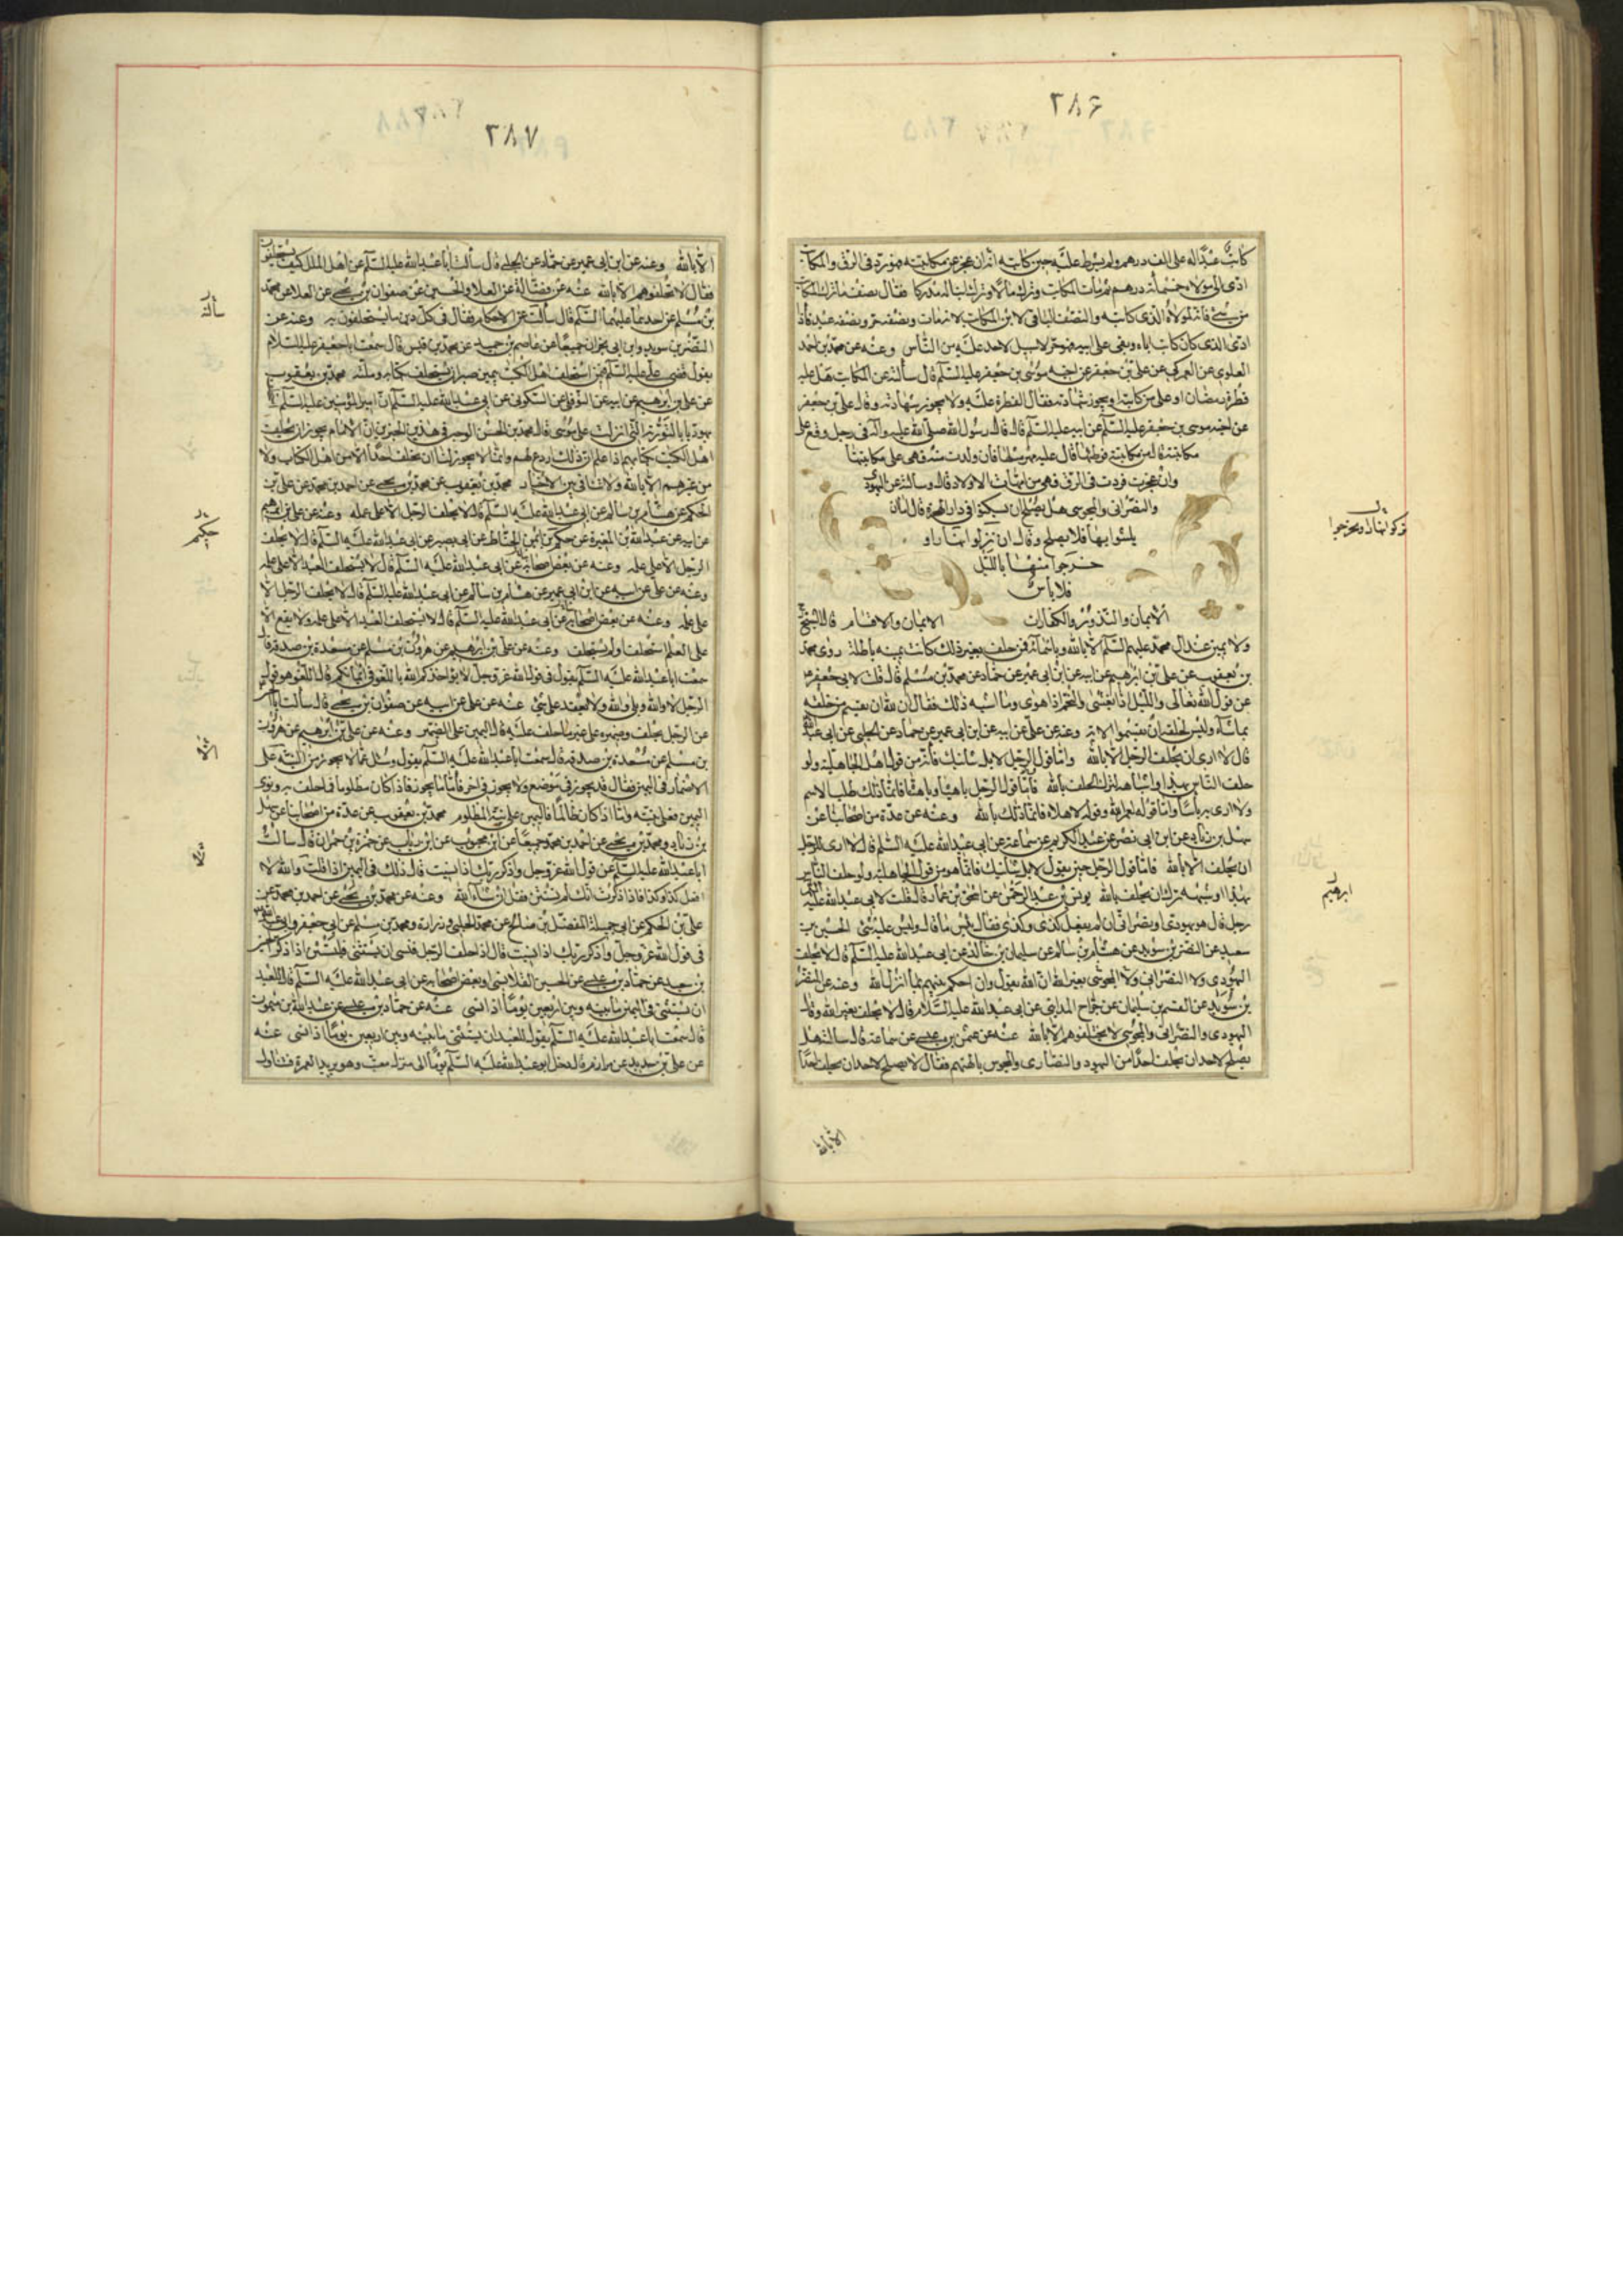 ٢٨۶
كاتب عبدا له على الف درهم ولم يشترط عليه حين كاتبه انه ان عجز عن مكاتبته فهو رد في الرق والمكاتب
ادى الى مولاه خمسمائة درهم ثم مات المكاتب وترك مالا وترك ابنا له مدركا فقال نصف ما ترك المكاتب
من شئ فانه لمولاه الذي كاتبه والنصف الباقي لابن المكاتب لانه مات ونصفه حر ونصفه عبد فاذا
ادى الذي كان كاتب اباه وبقى على ابيه فهو حر لا سبيل لاحد عليه من الناس وعنه عن محمد بن احمد
العلوي عن العمركي عن علي بن جعفر عن اخيه موسى بن جعفر عليه السلم قال سألته عن المكاتب هل عليه
فطرة رمضان او على من كاتبه او يجوز شهادته فقال الفطرة عليه ولا يجوز شهادته وقال علي بن جعفر
عن اخيه موسى بن جعفر عليه السلم عن ابيه عليه السلم قال قال رسول الله صلى الله عليه وآله في رجل وقع على
مكاتبته قال عليه مهر مثلها فان ولدت منه فهي على مكاتبتها
وان عجزت فردت في الرق فهي من امهات الاولاد قال وسالته عن اليهودي
والنصراني والمجوسي هل يصلح ان يسكنوا في دار الهجرة قال اما ان
يلبثوا بها فلا يصلح وقال ان نزلوا نهارا و
خرجوا منها بالليل
فلا بأس
الايمان والنذور والكفارات الايمان والاقسام قال الشيخ
ولا يمين عند آل محمد عليهم السلم الا بالله وباسمائه فمن حلف بغير ذلك كانت يمينه باطلة روى محمد
بن يعقوب عن علي بن ابرهيم عن ابيه عن ابن ابي عمير عن حماد عن محمد بن مسلم قال قلت لابي جعفر
عن قول الله تعالى والليل اذا يغشى والنجم اذا هوى وما اشبه ذلك فقال ان لله ان يقسم من خلقه
بما شاء وليس لخلقه ان يقسموا الا به وعنه عن علي عن ابيه عن ابن ابي عمير عن حماد عن الحلبي عن ابي عبد الله
قال لا ارى ان يحلف الرجل الا بالله واما قول الرجل لا بل شانيك فانه من قول اهل الجاهلية ولو
حلف الناس بهذا واشباهه لترك الحلف بالله فاما قول الرجل يا هياه ويا هناه فانما ذلك طلب الاسم
ولا ارى به بأسا واما قوله لعمر الله وقوله لاهلاه فانما ذلك بالله وعنه عن عدة من اصحابنا عن
سهل بن زياد عن ابن ابي نصر عن عبد الكريم عن سماعة عن ابي عبد الله عليه السلم قال لا ارى للرجل
ان يحلف الا بالله فاما قول الرجل حين يقول لا بل شانيك فانما هو من قول الجاهلية ولو حلف الناس
بهذا او شبهه ترك ان يحلف بالله يونس بن عبد الرحمن عن اسحق بن عمار قال قلت لابي عبد الله عليه السلم
رجل قال هو يهودي او نصراني ان لم يفعل كذى وكذى فقال بئس ما قال وليس عليه شئ الحسين بن
سعيد عن النضر بن سويد عن هشام بن سالم عن سليمان بن خالد عن ابي عبد الله عليه السلم قال لا يحلف
اليهودي ولا النصراني ولا المجوسي بغير الله ان الله يقول وان احكم بينهم بما انزل الله وعنه عن النضر
بن سويد عن القسم بن سليمان عن جراح المدايني عن ابي عبد الله عليه السلام قال لا يحلف بغير الله وقال
اليهودي والنصراني والمجوسي لا تحلفوهم الا بالله عنه عن عثمن بن عيسى عن سماعة قال سالته هل
يصلح لاحد ان يحلف احدا من اليهود والنصارى والمجوس بالهتهم فقال لا يصلح لاحد ان يحلف احدا
الا بالله
ابرهيم
٢٨٧
الا بالله وعنه عن ابن ابي عمير عن حماد عن الحلبي قال سألت ابا عبد الله عليه السلم عن اهل الملل كيف يستحلفون
فقال لا تحلفوهم الا بالله عنه عن فضالة عن العلا والحسين عن صفوان بن يحيى عن العلا عن محمد
بن مسلم عن احدهما عليهما السلم قال سألته عن الاحكام فقال في كل دين ما يستحلفون به وعنه عن
النضر بن سويد وابن ابي نجران جميعا عن عاصم بن حميد عن محمد بن قيس قال سمعت ابا جعفر عليه السلام
يقول قضى علي عليه السلم فيمن استحلف اهل الكتب بيمين صبر ان يستحلف بكتابه وملته محمد بن يعقوب
عن علي بن ابرهيم عن ابيه عن النوفلي عن السكوني عن ابي عبد الله عليه السلم ان امير المؤمنين عليه السلم استحلف
يهوديا بالتورية التي انزلت على موسى قال محمد بن الحسن الوجه في هذين الخبرين ان الامام يجوز ان يحلف
اهل الكتب بكتابهم اذا علم ان ذلك اردع لهم وانما لا يجوز لنا ان نحلف احدا لا من اهل الكتاب ولا
من غيرهم الا بالله ولا تنافي بين الاخبار محمد بن يعقوب عن محمد بن يحيى عن احمد بن محمد عن علي بن
الحكم عن هشام بن سالم عن ابي عبد الله عليه السلم قال لا يحلف الرجل الا على علمه وعنه عن علي بن ابرهيم
عن ابيه عن عبد الله بن المغيرة عن حكم بن ايمن الحناط عن ابي بصير عن ابي عبد الله عليه السلم قال لا يحلف
الرجل الا على علمه وعنه عن بعض اصحابه عن ابي عبد الله عليه السلم قال لا يستحلف العبد الا على علمه
وعنه عن علي عن ابيه عن ابن ابي عمير عن هشام بن سالم عن ابي عبد الله عليه السلم قال لا يحلف الرجل الا
على علمه وعنه عن بعض اصحابه عن ابي عبد الله عليه السلم قال لا يستحلف العبد الا على علمه ولا يقع الا
على العلم استحلف او لم يستحلف وعنه عن علي بن ابرهيم عن هرون بن مسلم عن مسعدة بن صدقة قال
سمعت ابا عبد الله عليه السلم يقول في قول الله عز وجل لا يؤاخذكم الله باللغو في ايمانكم قال اللغو هو قول
الرجل لا والله وبلى والله ولا يعقد على شئ عنه عن علي عن ابيه عن صفوان بن يحيى قال سألت ابا الحسن
عن الرجل يحلف وضميره على غير ما حلف عليه قال اليمين على الضمير وعنه عن علي بن ابرهيم عن هرون
بن مسلم عن مسعدة بن صدقة قال سمعت ابا عبد الله عليه السلم يقول وسئل عما لا يجوز من النية على
الاضمار في اليمين فقال قد يجوز في موضع ولا يجوز في اخر فاما ما يجوز فاذا كان مظلوما فما حلف به ونوى
اليمين فعلى نيته واما اذا كان ظالما فاليمين على نية المظلوم محمد بن يعقوب عن عدة من اصحابنا عن سهل
بن زياد ومحمد بن يحيى عن احمد بن محمد جميعا عن ابن محبوب عن ابن رئاب عن حمزة بن حمران قال سألت
ابا عبد الله عليه السلم عن قول الله عز وجل واذكر ربك اذا نسيت قال ذلك في اليمين اذا قلت والله لا
افعل كذا وكذا فاذا ذكرت انك لم تستثن فقل ان شاء الله وعنه عن محمد بن يحيى عن احمد بن محمد عن
علي بن الحكم عن ابي جميلة المفضل بن صالح عن محمد الحلبي وزرارة ومحمد بن مسلم عن ابي جعفر وابي عبد الله
في قول الله عز وجل واذكر ربك اذا نسيت قال اذا حلف الرجل فنسى ان يستثنى فليستثن اذا ذكر الحسين
بن سعيد عن حماد بن عيسى عن الحسين القلانسي او بعض اصحابه عن ابي عبد الله عليه السلم قال للعبد
ان يستثنى في اليمين ما بينه وبين اربعين يوما اذا نسى عنه عن حماد بن عيسى عن عبد الله بن ميمون
قال سمعت ابا عبد الله عليه السلم يقول للعبد ان يستثنى ما بينه وبين اربعين يوما اذا نسى عنه
عن علي بن حديد عن مرازم قال دخل ابو عبد الله عليه السلم يوما الى منزل معتب وهو يريد العمرة فتناول
سألته
حكيم